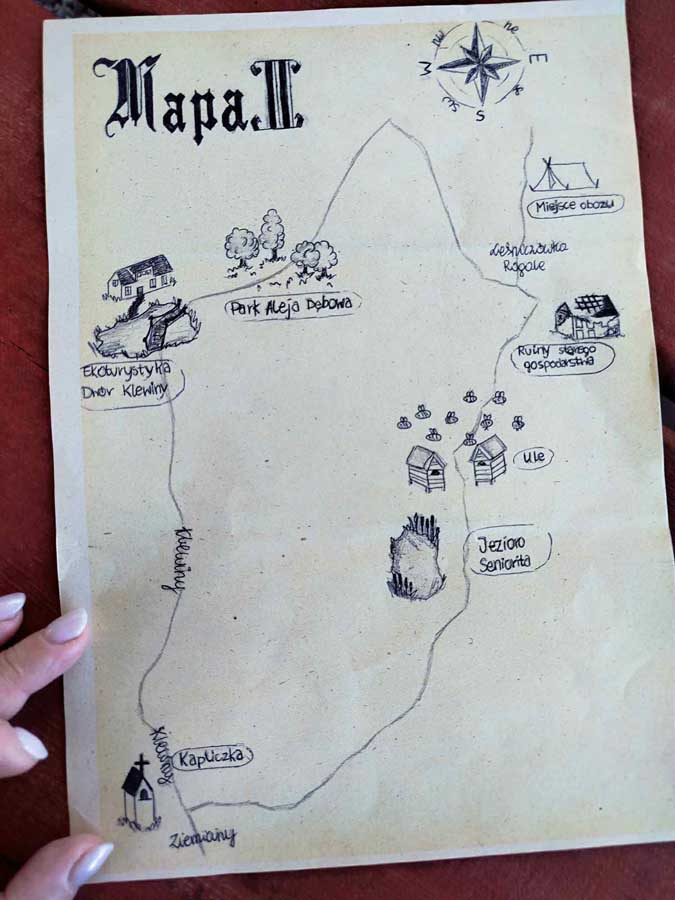 Mapa II
nw
ne
W
E
S
Miejsce obozu
Leśniczówka
Rogale
Park Aleja Dębowa
Ruiny starego
gospodarstwa
Ekoturystyka
Dwór Klewiny
Ule
Jezioro
Seniorita
Klewiny
Kapliczka
Ziemiany